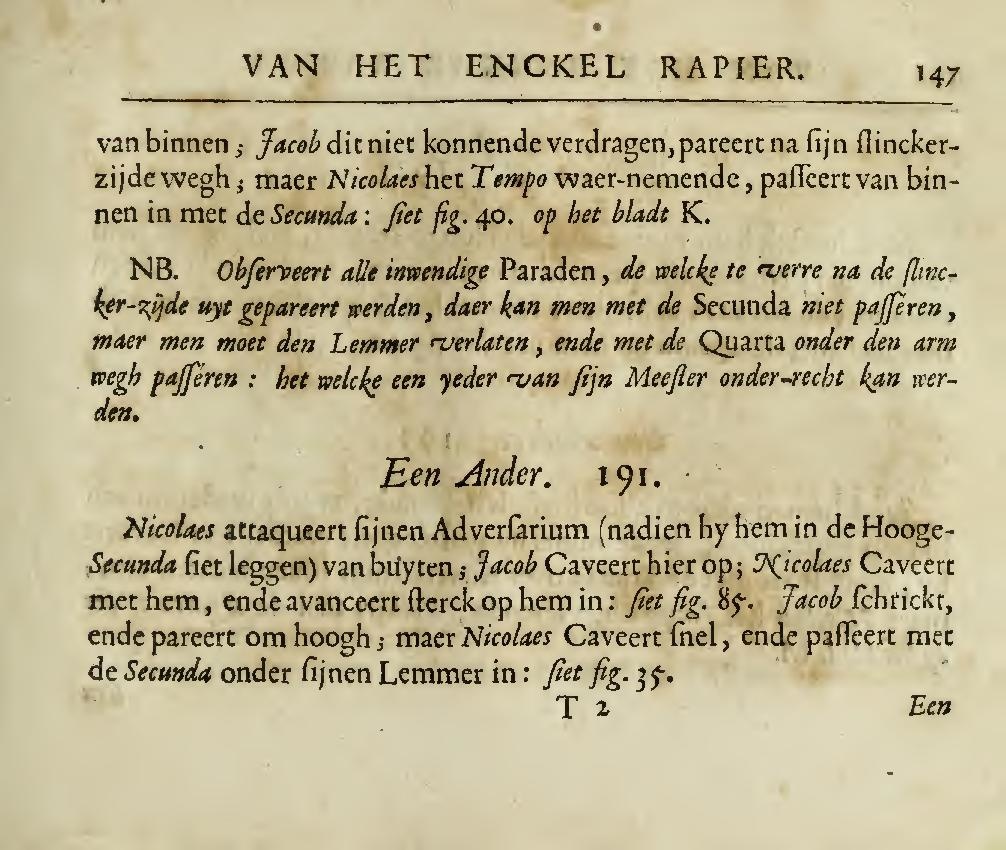 VAN HET ENCKEL RAPIER. 147
van binnen; Jacob dit niet konnende verdragen, pareert na ſijn ſlincker-
zijde wegh; maer Nicolaes het Tempo waer-nemende, paſſeert van bin-
nen in met de Secunda: ſiet fig. 40. op het bladt K.
NB. Obſerveert alle inwendige Paraden, de welcke te verre na de ſlinc-
ker-zijde uyt gepareert werden, daer kan men met de Secunda niet paſſéren,
maer men moet den Lemmer verlaten, ende met de Quarta onder den arm
wegh paſſéren: het welcke een yeder van ſijn Meeſter onder-recht kan wer-
den.
Een Ander. 191.
Nicolaes attaqueert ſijnen Adverſarium (nadien hy hem in de Hooge-
Secunda ſiet leggen) van buyten; Jacob Caveert hier op; Nicolaes Caveert
met hem, ende avanceert ſterck op hem in: ſiet fig. 85. Jacob ſchrickt,
ende pareert om hoogh; maer Nicolaes Caveert ſnel, ende paſſeert met
de Secunda onder ſijnen Lemmer in: ſiet fig. 35.
T 2 Een